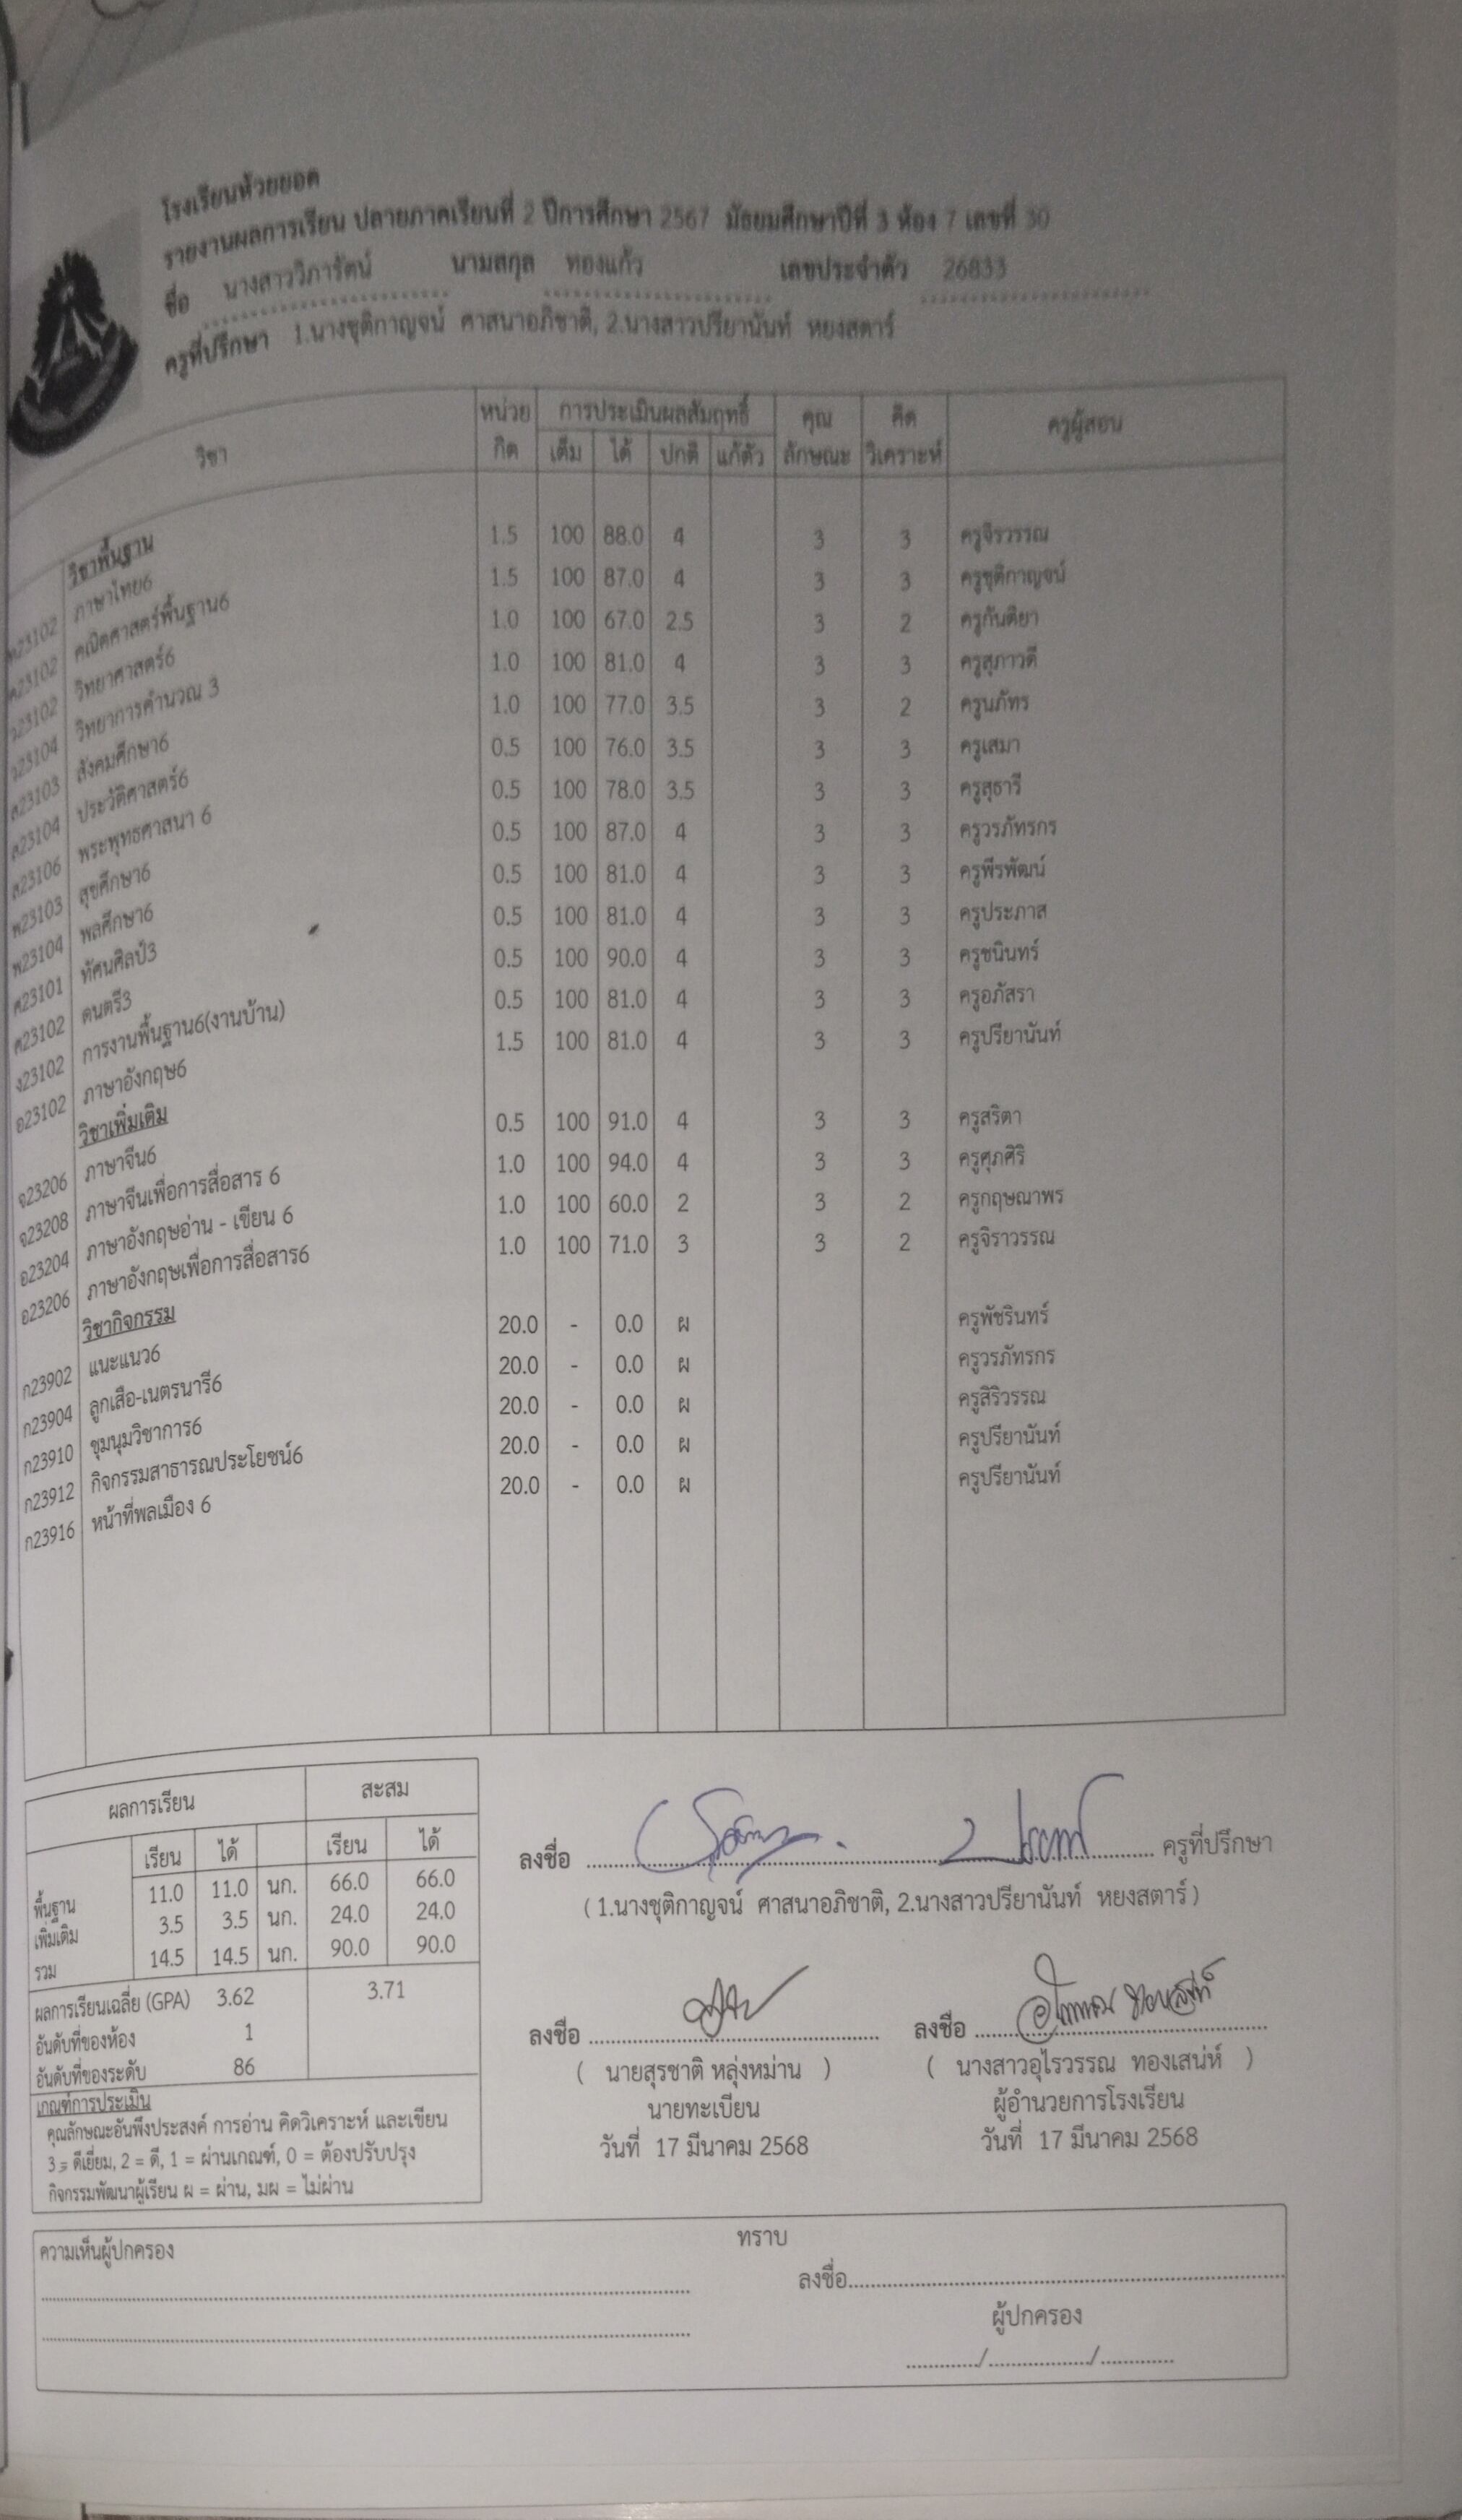 โรงเรียนห้วยยอด
รายงานผลการเรียน ปลายภาคเรียนที่ 2 ปีการศึกษา 2567 มัธยมศึกษาปีที่ 3 ห้อง 7 เลขที่ 30
ชื่อ นางสาววิภารัตน์ นามสกุล ทองแก้ว เลขประจำตัว 26833
ครูที่ปรึกษา 1.นางชุติกาญจน์ ศาสนาอภิชาติ, 2.นางสาวปรียานันท์ หยงสตาร์
วิชา หน่วยกิต การประเมินผลสัมฤทธิ์ คุณลักษณะ คิดวิเคราะห์ ครูผู้สอน
เต็ม ได้ ปกติ แก้ตัว
วิชาพื้นฐาน
ท23102 ภาษาไทย6 1.5 100 88.0 4 3 3 ครูจิรวรรณ
ค23102 คณิตศาสตร์พื้นฐาน6 1.5 100 87.0 4 3 3 ครูชุติกาญจน์
ว23102 วิทยาศาสตร์6 1.0 100 67.0 2.5 3 2 ครูกันติยา
ว23104 วิทยาการคำนวณ 3 1.0 100 81.0 4 3 3 ครูสุภาวดี
ส23103 สังคมศึกษา6 1.0 100 77.0 3.5 3 2 ครูนภัทร
ส23104 ประวัติศาสตร์6 0.5 100 76.0 3.5 3 3 ครูเสมา
ส23106 พระพุทธศาสนา 6 0.5 100 78.0 3.5 3 3 ครูสุธารี
พ23103 สุขศึกษา6 0.5 100 87.0 4 3 3 ครูวรภัทรกร
พ23104 พลศึกษา6 0.5 100 81.0 4 3 3 ครูพีรพัฒน์
ศ23101 ทัศนศิลป์3 0.5 100 81.0 4 3 3 ครูประภาส
ศ23102 ดนตรี3 0.5 100 90.0 4 3 3 ครูชนินทร์
ง23102 การงานพื้นฐาน6(งานบ้าน) 0.5 100 81.0 4 3 3 ครูอภัสรา
อ23102 ภาษาอังกฤษ6 1.5 100 81.0 4 3 3 ครูปรียานันท์
วิชาเพิ่มเติม
จ23206 ภาษาจีน6 0.5 100 91.0 4 3 3 ครูสริตา
จ23208 ภาษาจีนเพื่อการสื่อสาร 6 1.0 100 94.0 4 3 3 ครูศุภศิริ
อ23204 ภาษาอังกฤษอ่าน - เขียน 6 1.0 100 60.0 2 3 2 ครูกฤษณาพร
อ23206 ภาษาอังกฤษเพื่อการสื่อสาร6 1.0 100 71.0 3 3 2 ครูจิราวรรณ
วิชากิจกรรม
ก23902 แนะแนว6 20.0 - 0.0 ผ ครูพัชรินทร์
ก23904 ลูกเสือ-เนตรนารี6 20.0 - 0.0 ผ ครูวรภัทรกร
ก23910 ชุมนุมวิชาการ6 20.0 - 0.0 ผ ครูสิริวรรณ
ก23912 กิจกรรมสาธารณประโยชน์6 20.0 - 0.0 ผ ครูปรียานันท์
ก23916 หน้าที่พลเมือง 6 20.0 - 0.0 ผ ครูปรียานันท์
ผลการเรียน สะสม
เรียน ได้ เรียน ได้
พื้นฐาน 11.0 11.0 นก. 66.0 66.0
เพิ่มเติม 3.5 3.5 นก. 24.0 24.0
รวม 14.5 14.5 นก. 90.0 90.0
ผลการเรียนเฉลี่ย (GPA) 3.62 3.71
อันดับที่ของห้อง 1
อันดับที่ของระดับ 86
เกณฑ์การประเมิน
คุณลักษณะอันพึงประสงค์ การอ่าน คิดวิเคราะห์ และเขียน
3 = ดีเยี่ยม, 2 = ดี, 1 = ผ่านเกณฑ์, 0 = ต้องปรับปรุง
กิจกรรมพัฒนาผู้เรียน ผ = ผ่าน, มผ = ไม่ผ่าน
ลงชื่อ ครูที่ปรึกษา
( 1.นางชุติกาญจน์ ศาสนาอภิชาติ, 2.นางสาวปรียานันท์ หยงสตาร์ )
ลงชื่อ
( นายสุรชาติ หลุ่งหม่าน )
นายทะเบียน
วันที่ 17 มีนาคม 2568
ลงชื่อ
( นางสาวอุไรวรรณ ทองเสน่ห์ )
ผู้อำนวยการโรงเรียน
วันที่ 17 มีนาคม 2568
ความเห็นผู้ปกครอง
ทราบ
ลงชื่อ
ผู้ปกครอง